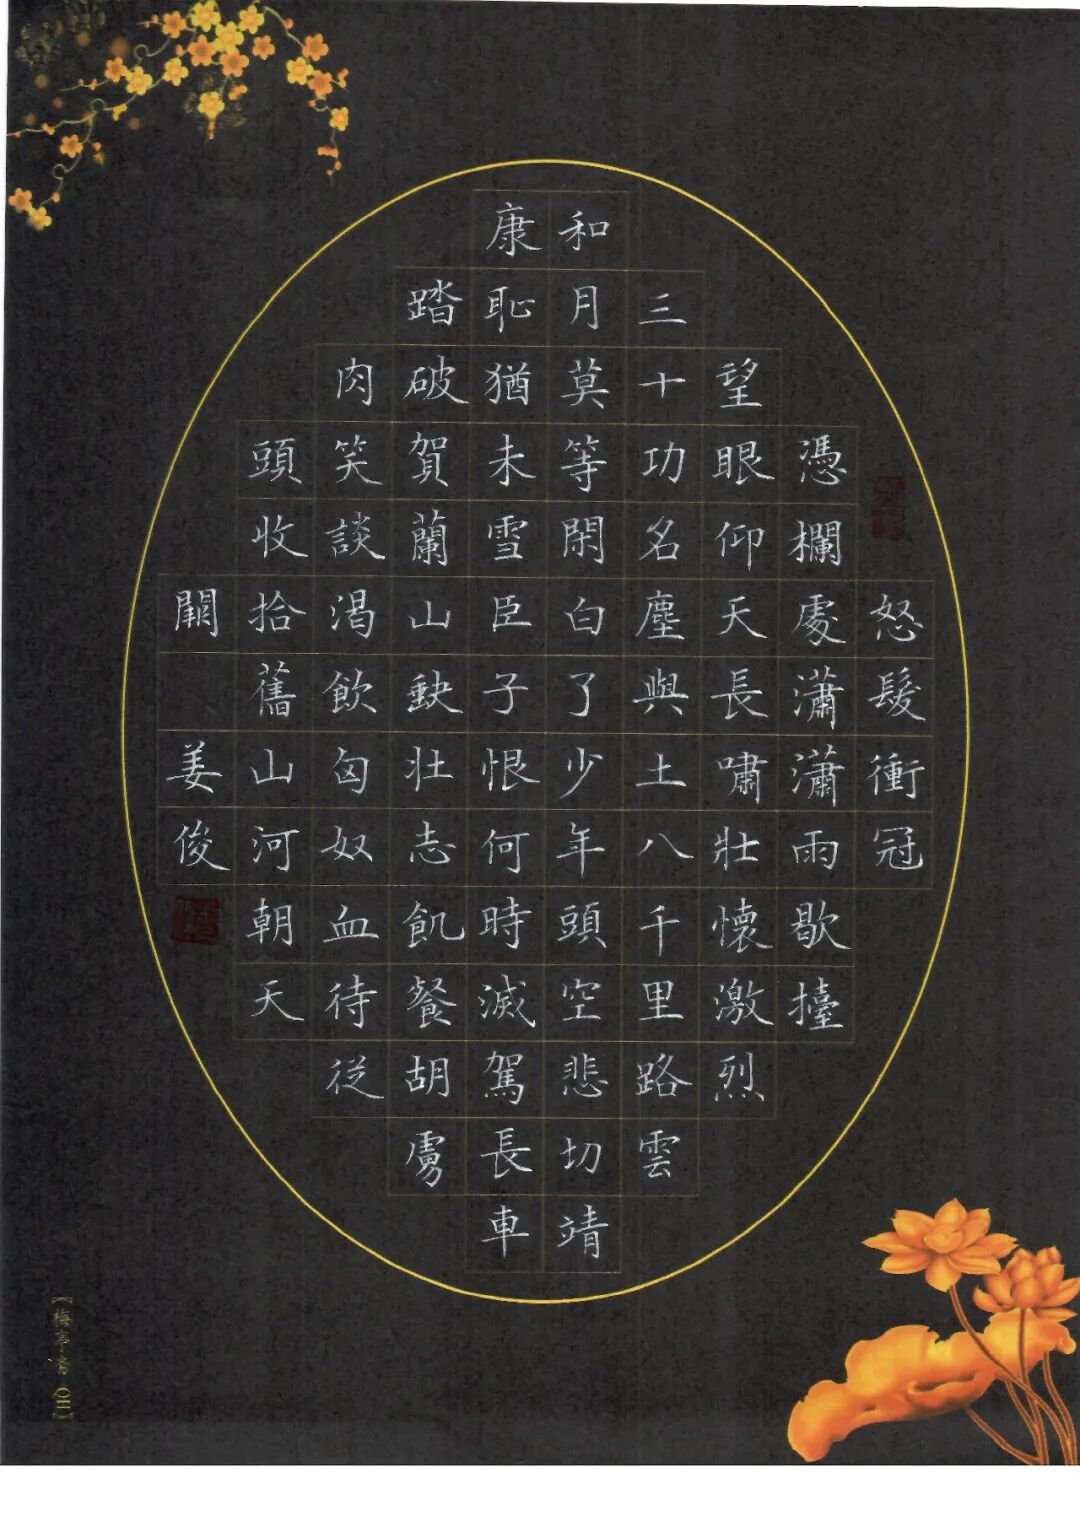 怒髮衝冠
憑欄處瀟瀟雨歇擡
望眼仰天長嘯壯懷激烈
三十功名塵與土八千里路雲
和月莫等閑白了少年頭空悲切靖
康恥猶未雪臣子恨何時滅駕長車
踏破賀蘭山缺壯志飢餐胡虜
肉笑談渴飲匈奴血待從
頭收拾舊山河朝天
闕 姜俊
【梅亭斋 011】